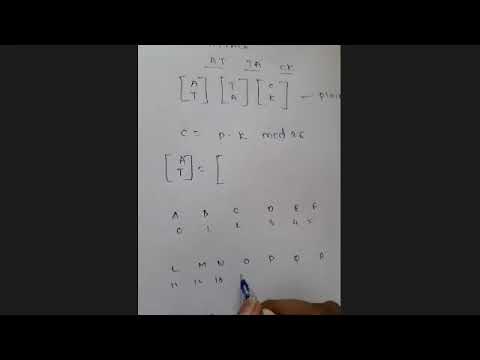 AT TA CK
[A T] [T A] [C K] — plain
C = P·K mod 26
[A T] = [
A B C D E F
0 1 2 3 4 5
L M N O P Q R
11 12 13